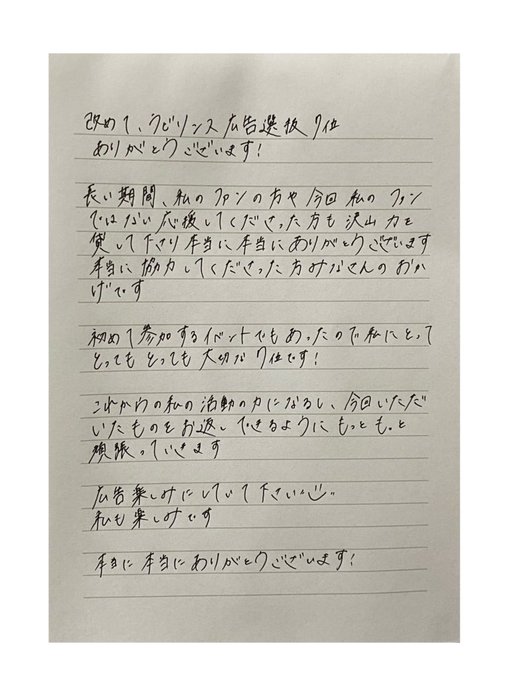 改めて、ラビリンス広告選抜7位
ありがとうございます!
長い期間、私のファンの方や今回私のファン
ではない応援してくださった方も沢山力を
貸して下さり本当に本当にありがとうございます
本当に協力してくださった方みなさんのおか
げです
初めて参加するイベントでもあったので私にとって
とってもとっても大切な7位です!
これからの私の活動の力になるし、今回いただ
いたものをお返しできるようにもっともっと
頑張っていきます
広告楽しみにしていて下さい
私も楽しみです
本当に本当にありがとうございます!